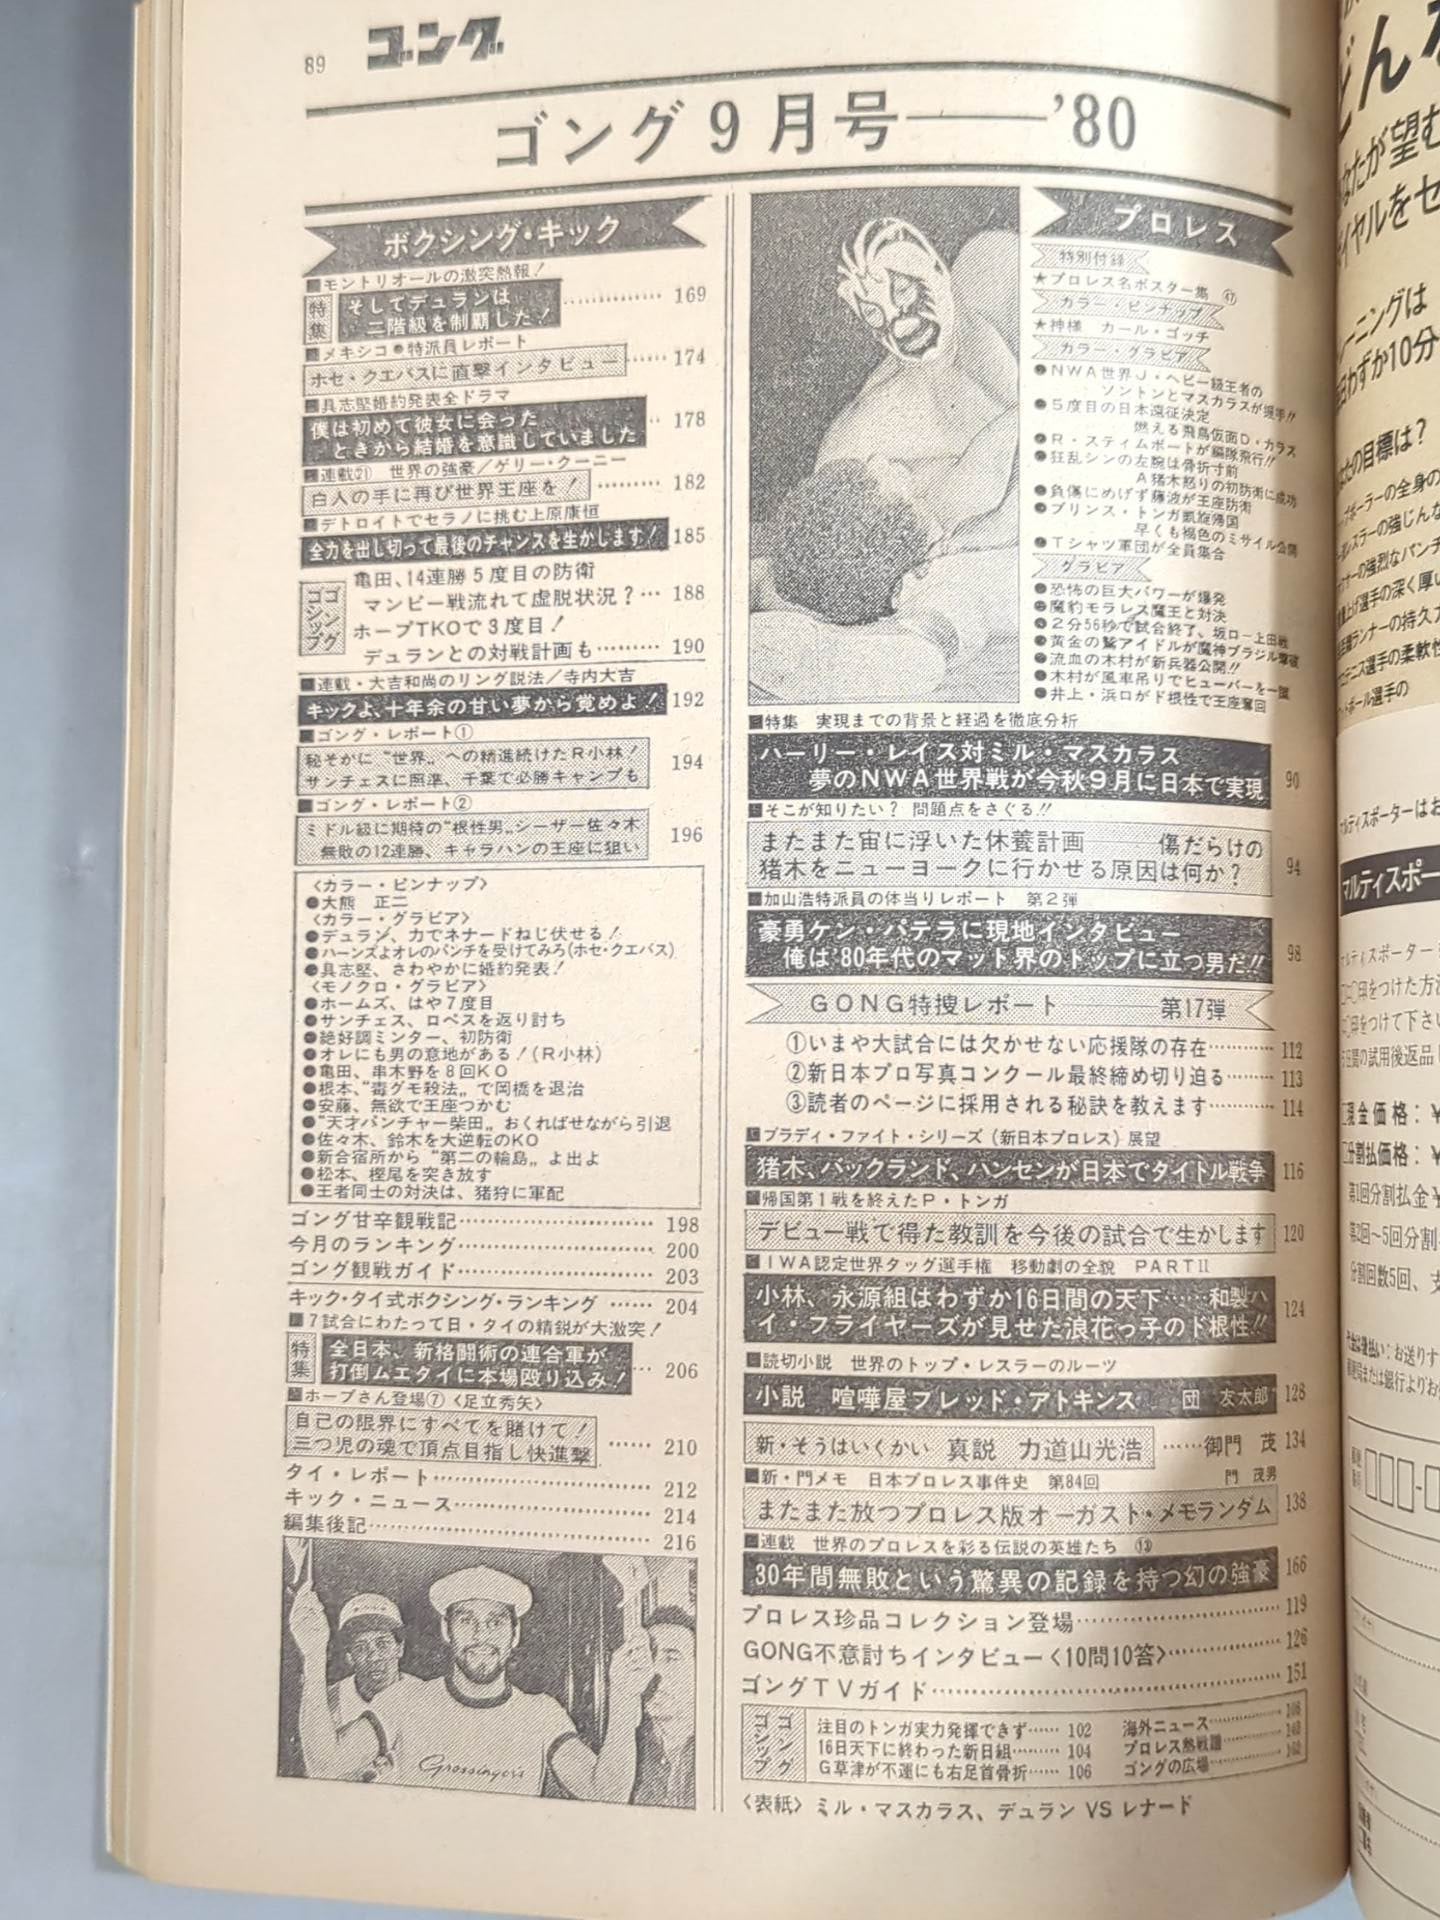 89
ゴング
ゴング9月号——'80
ボクシング・キック
■モントリオールの激突熱報!
特集
そしてデュランは
二階級を制覇した! 169
■メキシコ●特派員レポート
ホセ・クエバスに直撃インタビュー 174
■具志堅婚約発表全ドラマ
僕は初めて彼女に会った
ときから結婚を意識していました 178
■連載㉑ 世界の強豪/ゲリー・クーニー
白人の手に再び世界王座を! 182
■デトロイトでセラノに挑む上原康恒
全力を出し切って最後のチャンスを生かします! 185
ゴング
ゴシップ
亀田、14連勝5度目の防衛
マンビー戦流れて虚脱状況?… 188
ホープTKOで3度目!
デュランとの対戦計画も……… 190
■連載・大吉和尚のリング説法/寺内大吉
キックよ、十年余の甘い夢から覚めよ! 192
■ゴング・レポート①
秘そかに〝世界〟への精進続けたR小林!
サンチェスに照準、千葉で必勝キャンプも 194
■ゴング・レポート②
ミドル級に期待の〝根性男〟シーザー佐々木
無敗の12連勝、キャラハンの王座に狙い 196
〈カラー・ピンナップ〉
●大熊 正二
〈カラー・グラビア〉
●デュラン、力でネナードねじ伏せる!
●ハーンズよオレのパンチを受けてみろ(ホセ・クエバス)
●具志堅、さわやかに婚約発表!
〈モノクロ・グラビア〉
●ホームズ、はや7度目
●サンチェス、ロペスを返り討ち
●絶好調ミンター、初防衛
●オレにも男の意地がある!(R小林)
●亀田、串木野を8回KO
●根本、〝毒グモ殺法〟で岡橋を退治
●安藤、無欲で王座つかむ
●〝天才パンチャー柴田〟おくればせながら引退
●佐々木、鈴木を大逆転のKO
●新合宿所から〝第二の輪島〟よ出よ
●松本、樫尾を突き放す
●王者同士の対決は、猪狩に軍配
ゴング甘辛観戦記 198
今月のランキング 200
ゴング観戦ガイド 203
キック・タイ式ボクシング・ランキング …… 204
■7試合にわたって日・タイの精鋭が大激突!
特集
全日本、新格闘術の連合軍が
打倒ムエタイに本場殴り込み! 206
■ホープさん登場⑦〈足立秀矢〉
自己の限界にすべてを賭けて!
三つ児の魂で頂点目指し快進撃 210
タイ・レポート 212
キック・ニュース 214
編集後記 216
Grossinger's
プロレス
特別付録
★プロレス名ポスター集 ㊼
カラー・ピンナップ
★神様 カール・ゴッチ
カラー・グラビア
●NWA世界J・ヘビー級王者の
ソントンとマスカラスが握手!!
●5度目の日本遠征決定
燃える飛鳥仮面D・カラス
●R・スティムボートが編隊飛行!!
●狂乱シンの左腕は骨折寸前
A猪木怒りの初防衛に成功
●負傷にめげず藤波が王座防衛
●プリンス・トンガ凱旋帰国
早くも褐色のミサイル公開
●Tシャツ軍団が全員集合
グラビア
●恐怖の巨大パワーが爆発
●魔豹モラレス魔王と対決
●2分56秒で試合終了、坂口ー上田戦
●黄金の鷲アイドルが魔神ブラジル撃破
●流血の木村が新兵器公開!!
●木村が風車吊りでヒューバーを一蹴
●井上・浜口がド根性で王座奪回
■特集 実現までの背景と経過を徹底分析
ハーリー・レイス対ミル・マスカラス
夢のNWA世界戦が今秋9月に日本で実現 90
■そこが知りたい? 問題点をさぐる!!
またまた宙に浮いた休養計画——傷だらけの
猪木をニューヨークに行かせる原因は何か? 94
■加山浩特派員の体当りレポート 第2弾
豪勇ケン・パテラに現地インタビュー
俺は'80年代のマット界のトップに立つ男だ!! 98
GONG特捜レポート——第17弾
①いまや大試合には欠かせない応援隊の存在 112
②新日本プロ写真コンクール最終締め切り迫る 113
③読者のページに採用される秘訣を教えます 114
■ブラディ・ファイト・シリーズ(新日本プロレス)展望
猪木、バックランド、ハンセンが日本でタイトル戦争 116
■帰国第1戦を終えたP・トンガ
デビュー戦で得た教訓を今後の試合で生かします 120
■IWA認定世界タッグ選手権 移動劇の全貌 PARTⅡ
小林、永源組はわずか16日間の天下……和製ハ
イ・フライヤーズが見せた浪花っ子のド根性!! 124
■読切小説 世界のトップ・レスラーのルーツ
小説 喧嘩屋フレッド・アトキンス 団 友太郎 128
新・そうはいくかい 真説 力道山光浩 ……御門 茂 134
■新・門メモ 日本プロレス事件史 第84回 門 茂男
またまた放つプロレス版オーガスト・メモランダム 138
■連載 世界のプロレスを彩る伝説の英雄たち ⑬
30年間無敗という驚異の記録を持つ幻の強豪 166
プロレス珍品コレクション登場 119
GONG不意討ちインタビュー〈10問10答〉 126
ゴングTVガイド 151
ゴング
ゴシップ
注目のトンガ実力発揮できず…… 102
16日天下に終わった新日組 104
G草津が不運にも右足首骨折…… 106
海外ニュース
プロレス熱戦譜
ゴングの広場
〈表紙〉ミル・マスカラス、デュラン VS レナード
あなたが望む
わずか10分
マルティスポー
現金価格:¥
分割払価格:¥